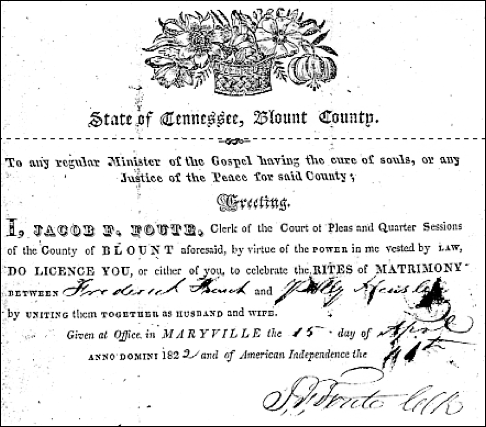 State of Tennessee, Blount County.
To any regular Minister of the Gospel having the cure of souls, or any
Justice of the Peace for said County;
Greeting.
I, JACOB F. FOUTE, Clerk of the Court of Pleas and Quarter Sessions
of the County of BLOUNT aforesaid, by virtue of the POWER in me vested by LAW,
DO LICENCE YOU, or either of you, to celebrate the RITES of MATRIMONY
BETWEEN Frederick and
by UNITING them TOGETHER as HUSBAND and WIFE.
Given at Office in MARYVILLE the 15 day of April
ANNO DOMINI 1822 and of American Independence the
J. F. Foute Clk